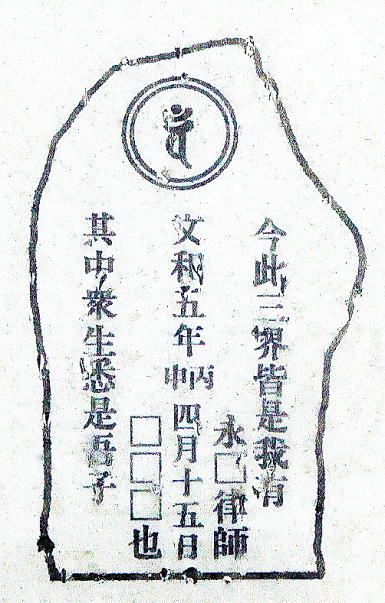 今此三界皆是我有
永□律師
文和五年丙申四月十五日
□□□也
其中衆生悉是吾子